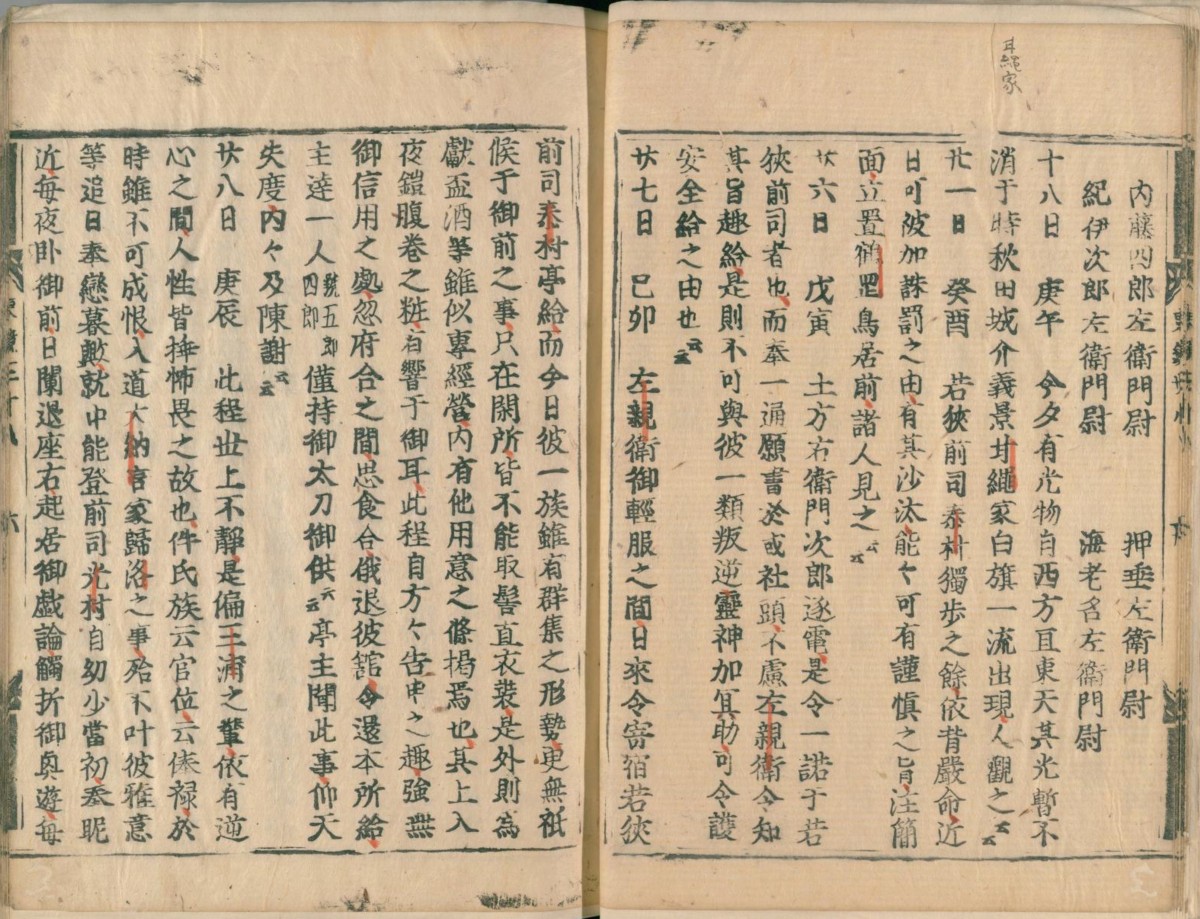 耳縄家
内藤四郎左衛門尉　　押垂左衛門尉
紀伊次郎左衛門尉　　海老名左衛門尉
十八日　庚午　今夕有光物自西方亘東天其光暫不
消于時秋田城介義景甘縄家白旗一流出現人觀之云云
廿一日　癸酉　若狹前司泰村獨歩之餘依背嚴命近
日可彼加誅罰之由有其沙汰能々可有謹慎之旨注簡
面立置鶴置鳥居前諸人見之云云
廿六日　戊寅　土方右衛門次郎逐電是令一諾于若
狹前司者也而奉一通願書於或社頭不慮左親衛令知
其旨趣給是則不可與彼一類叛逆靈神加冥助可令護
安全給之由也云云
廿七日　己卯　左親衛御輕服之間日來令寄宿若狹
前司泰村亭給而今日彼一族雖有群集之形勢更無祗
候于御前之事只在閑所皆不能取髻直衣裝是外則為
獻盃酒等雖似專經營内有他用意之條掲焉也其上入
夜鎧腹巻之粧有響于御耳此程自方々告申之趣強無
御信用之處忽府合之間忠食合俄退彼舘令還本所給
主達一人號五郎四郎僅持御太刀御供云云亭主聞此事仰天
失度内々及陳謝云云
廿八日　庚辰　此程世上不靜是偏三浦之輩依有逆
心之間人性皆挿怖畏之故也件氏族云官位云俸禄於
時雖不可成恨入道大納言家歸洛之事殆不叶彼雅意
等追日奉戀慕歟就中能登前司光村自幼少當初奉昵
近毎夜臥御前日闌退座右起居御戯論觸折御奥遊毎